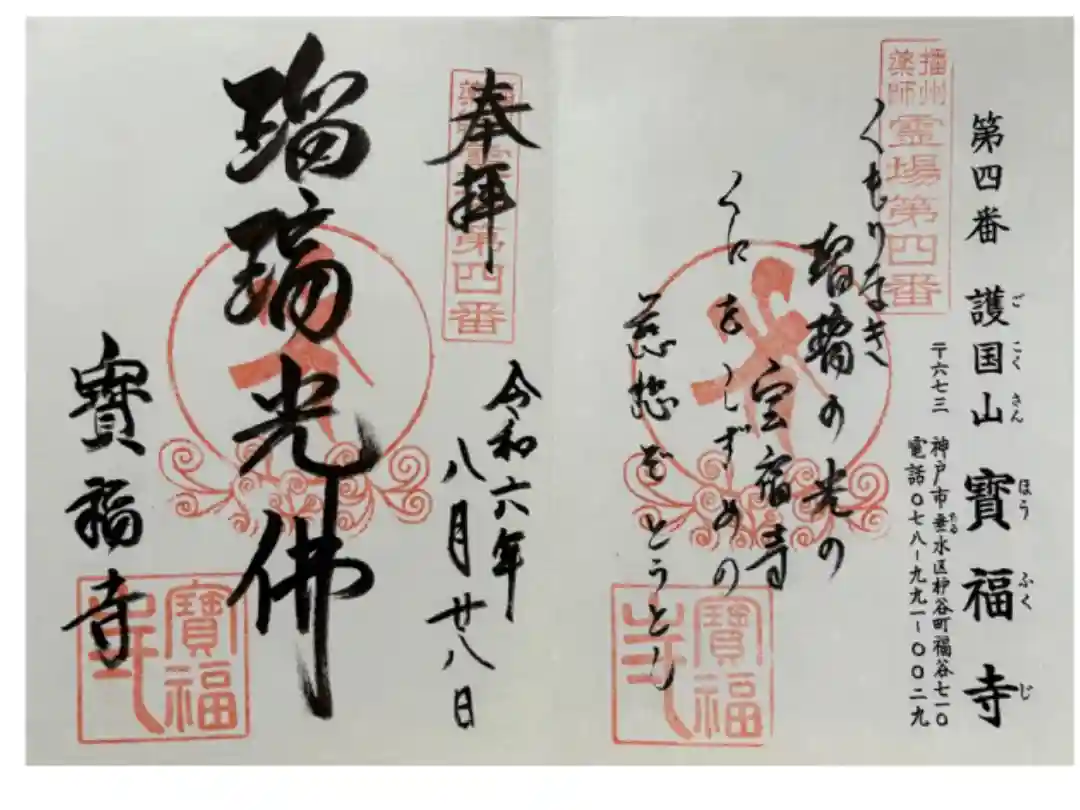 第四番 護国山 寶福寺
ごこくさん ほうふくじ
〒六七三 神戸市垂水区枦谷町福谷七一〇
たる
電話〇七八-九九一-〇〇二九
播州薬師霊場第四番
くもりなき
瑠璃の光の
宝福寺
くにをしずめの
慈悲ぞとうとし
寶福寺
奉拝
播州薬師霊場第四番
令和六年
八月廿八日
瑠璃光佛
寶福寺
寶福寺